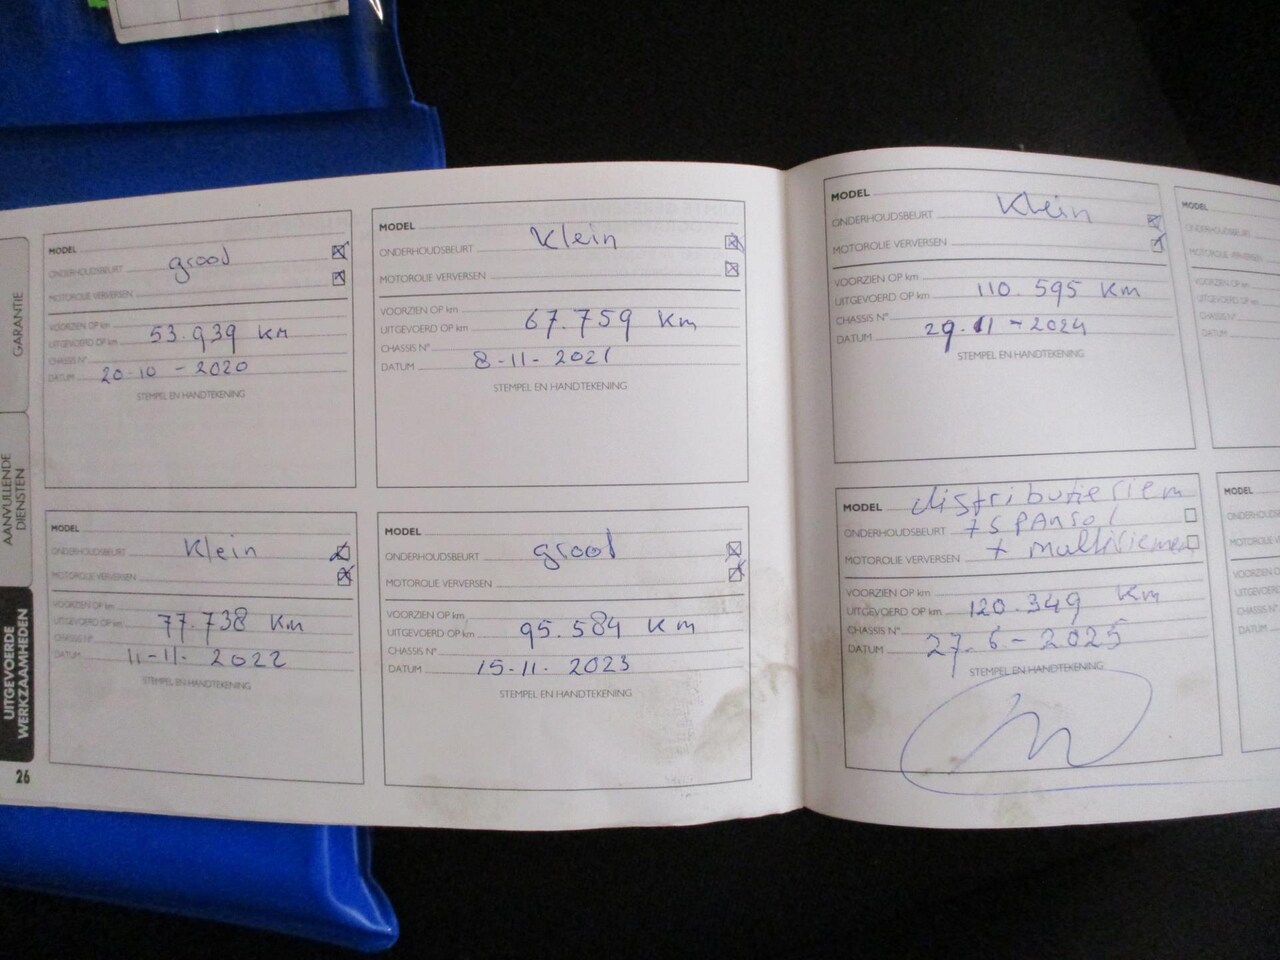 GARANTIE
AANVULLENDE
DIENSTEN
UITGEVOERDE
WERKZAAMHEDEN
26
MODEL
ONDERHOUDSBEURT groot
MOTOROLIE VERVERSEN
VOORZIEN OP km
UITGEVOERD OP km 53.939 Km
CHASSIS N°
DATUM 20-10-2020
STEMPEL EN HANDTEKENING
MODEL
ONDERHOUDSBEURT Klein
MOTOROLIE VERVERSEN
VOORZIEN OP km
UITGEVOERD OP km 67.759 Km
CHASSIS N°
DATUM 8-11-2021
STEMPEL EN HANDTEKENING
MODEL
ONDERHOUDSBEURT Klein
MOTOROLIE VERVERSEN
VOORZIEN OP km
UITGEVOERD OP km 77.738 Km
CHASSIS N°
DATUM 11-11-2022
STEMPEL EN HANDTEKENING
MODEL
ONDERHOUDSBEURT groot
MOTOROLIE VERVERSEN
VOORZIEN OP km
UITGEVOERD OP km 95.584 Km
CHASSIS N°
DATUM 15-11-2023
STEMPEL EN HANDTEKENING
MODEL
ONDERHOUDSBEURT Klein
MOTOROLIE VERVERSEN
VOORZIEN OP km
UITGEVOERD OP km 110.595 Km
CHASSIS N°
DATUM 29-11-2024
STEMPEL EN HANDTEKENING
MODEL distributieriem
ONDERHOUDSBEURT + spanrol
MOTOROLIE VERVERSEN + multiriemen
VOORZIEN OP km
UITGEVOERD OP km 120.349 Km
CHASSIS N°
DATUM 27-6-2025
STEMPEL EN HANDTEKENING
MODEL
MODEL